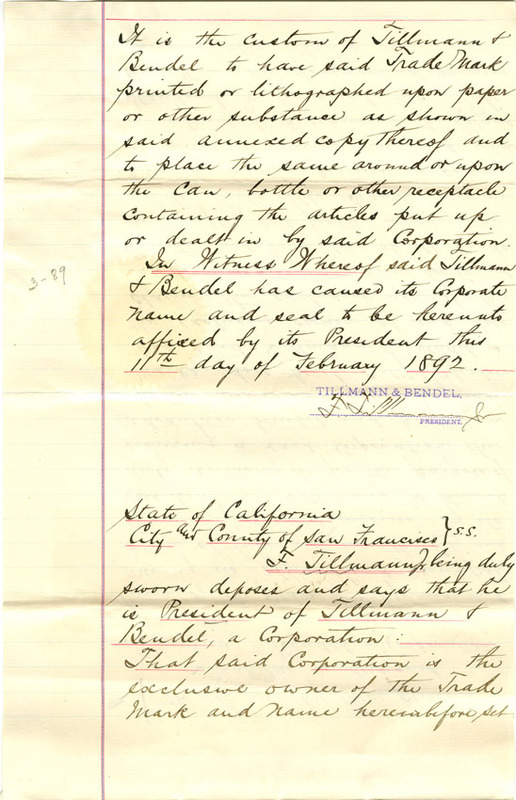 It is the custom of Tillmann &
Bendel to have said Trade Mark
printed or lithographed upon paper
or other substance as shown in
said annexed copy thereof and
to place the same around or upon
the can, bottle or other receptacle
containing the articles put up
or dealt in by said Corporation.
In Witness Whereof said Tillmann
& Bendel has caused its Corporate
name and seal to be hereunto
affixed by its President this
11th day of February 1892.
3-89
TILLMANN & BENDEL,
F. Tillmann Jr
PRESIDENT.
State of California
City and County of San Francisco } s.s.
F. Tillmann Jr being duly
sworn deposes and says that he
is President of Tillmann &
Bendel, a Corporation:
That said Corporation is the
exclusive owner of the Trade
Mark and name hereinbefore set